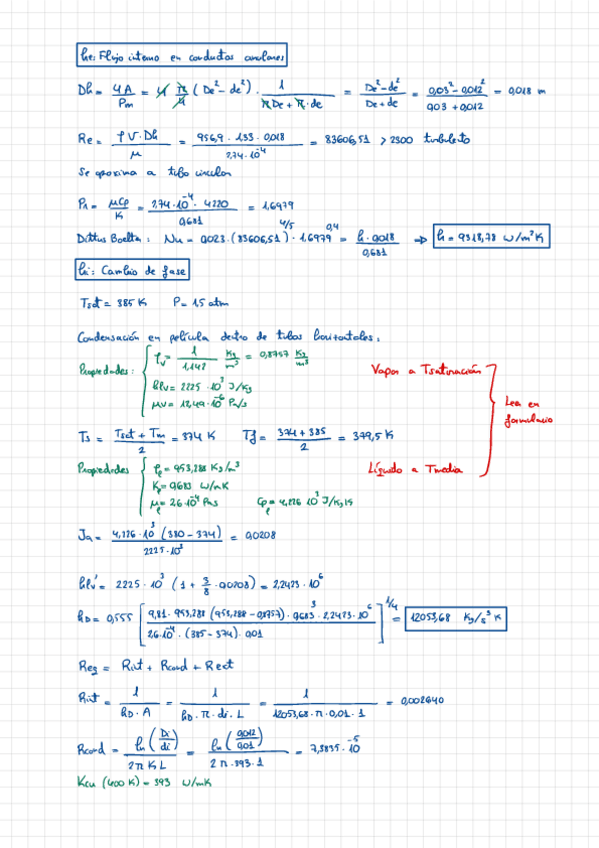 he: Flujo interno en conductos anulares
Dh = 4A/Pm = 4 π/4 (De² - de²) · 1/(πDe + π·de) = (De² - de²)/(De + de) = (0,03² - 0,012²)/(0,03 + 0,012) = 0,018 m
Re = ρV·Dh/μ = 956,9 · 1,33 · 0,018/2,74·10⁻⁴ = 83606,51 > 2300 turbulento
Se aproxima a tubo circular
Pr = μCp/K = 2,74·10⁻⁴ · 4220/0,681 = 1,6979
Dittus Boelter: Nu = 0,023 · (83606,51)^4/5 · 1,6979^0,4 = h · 0,018/0,681 ⇒ h = 9318,78 W/m²K
hi: Cambio de fase
Tsat = 385 K P = 1,5 atm
Condensación en película dentro de tubos horizontales:
Propiedades: ρv = 1/1,142 Kg/m³ = 0,8757 Kg/m³
hlv = 2225 · 10³ J/Kg
μv = 12,49·10⁻⁶ Pa/s
Vapor a Tsaturación
Ts = (Tsat + Tm)/2 = 374 K Tf = (374 + 385)/2 = 379,5 K
Lea en formulario
Propiedades ρl = 953,288 Kg/m³
Kl = 0,683 W/mK
μl = 26·10⁻⁴ Pa·s Cpl = 4,226 10³ J/Kg·K
Líquido a Tmedia
Ja = 4,226·10³ (380 - 374)/2225·10³ = 0,0208
hlv' = 2225 · 10³ (1 + 3/8 · 0,0208) = 2,2423 · 10⁶
hD = 0,555 [9,81 · 953,288 (953,288 - 0,8757) · 0,683³ · 2,2423 · 10⁶/26·10⁻⁴ · (385 - 374) · 0,01]^1/4 = 12053,68 Kg/s³K
Req = Rint + Rcond + Rext
Rint = 1/(hD · A) = 1/(hD · π · di · L) = 1/(12053,68 · π · 0,01 · 1) = 0,002640
Rcond = ln(Di/di)/2πKL = ln(0,012/0,01)/2π · 393 · 1 = 7,3835 · 10⁻⁵
Kcu (400 K) = 393 W/mK